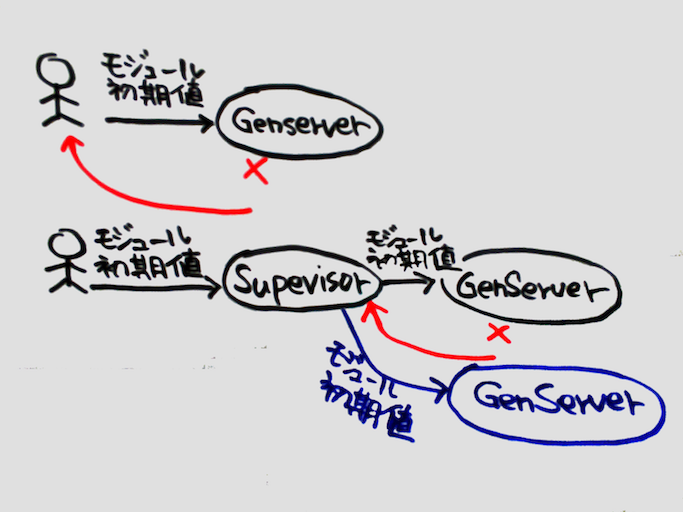 モジュール
初期値
Genserver
モジュール
初期値
Supevisor
モジュール
初期値
GenServer
モジュール
初期値
GenServer